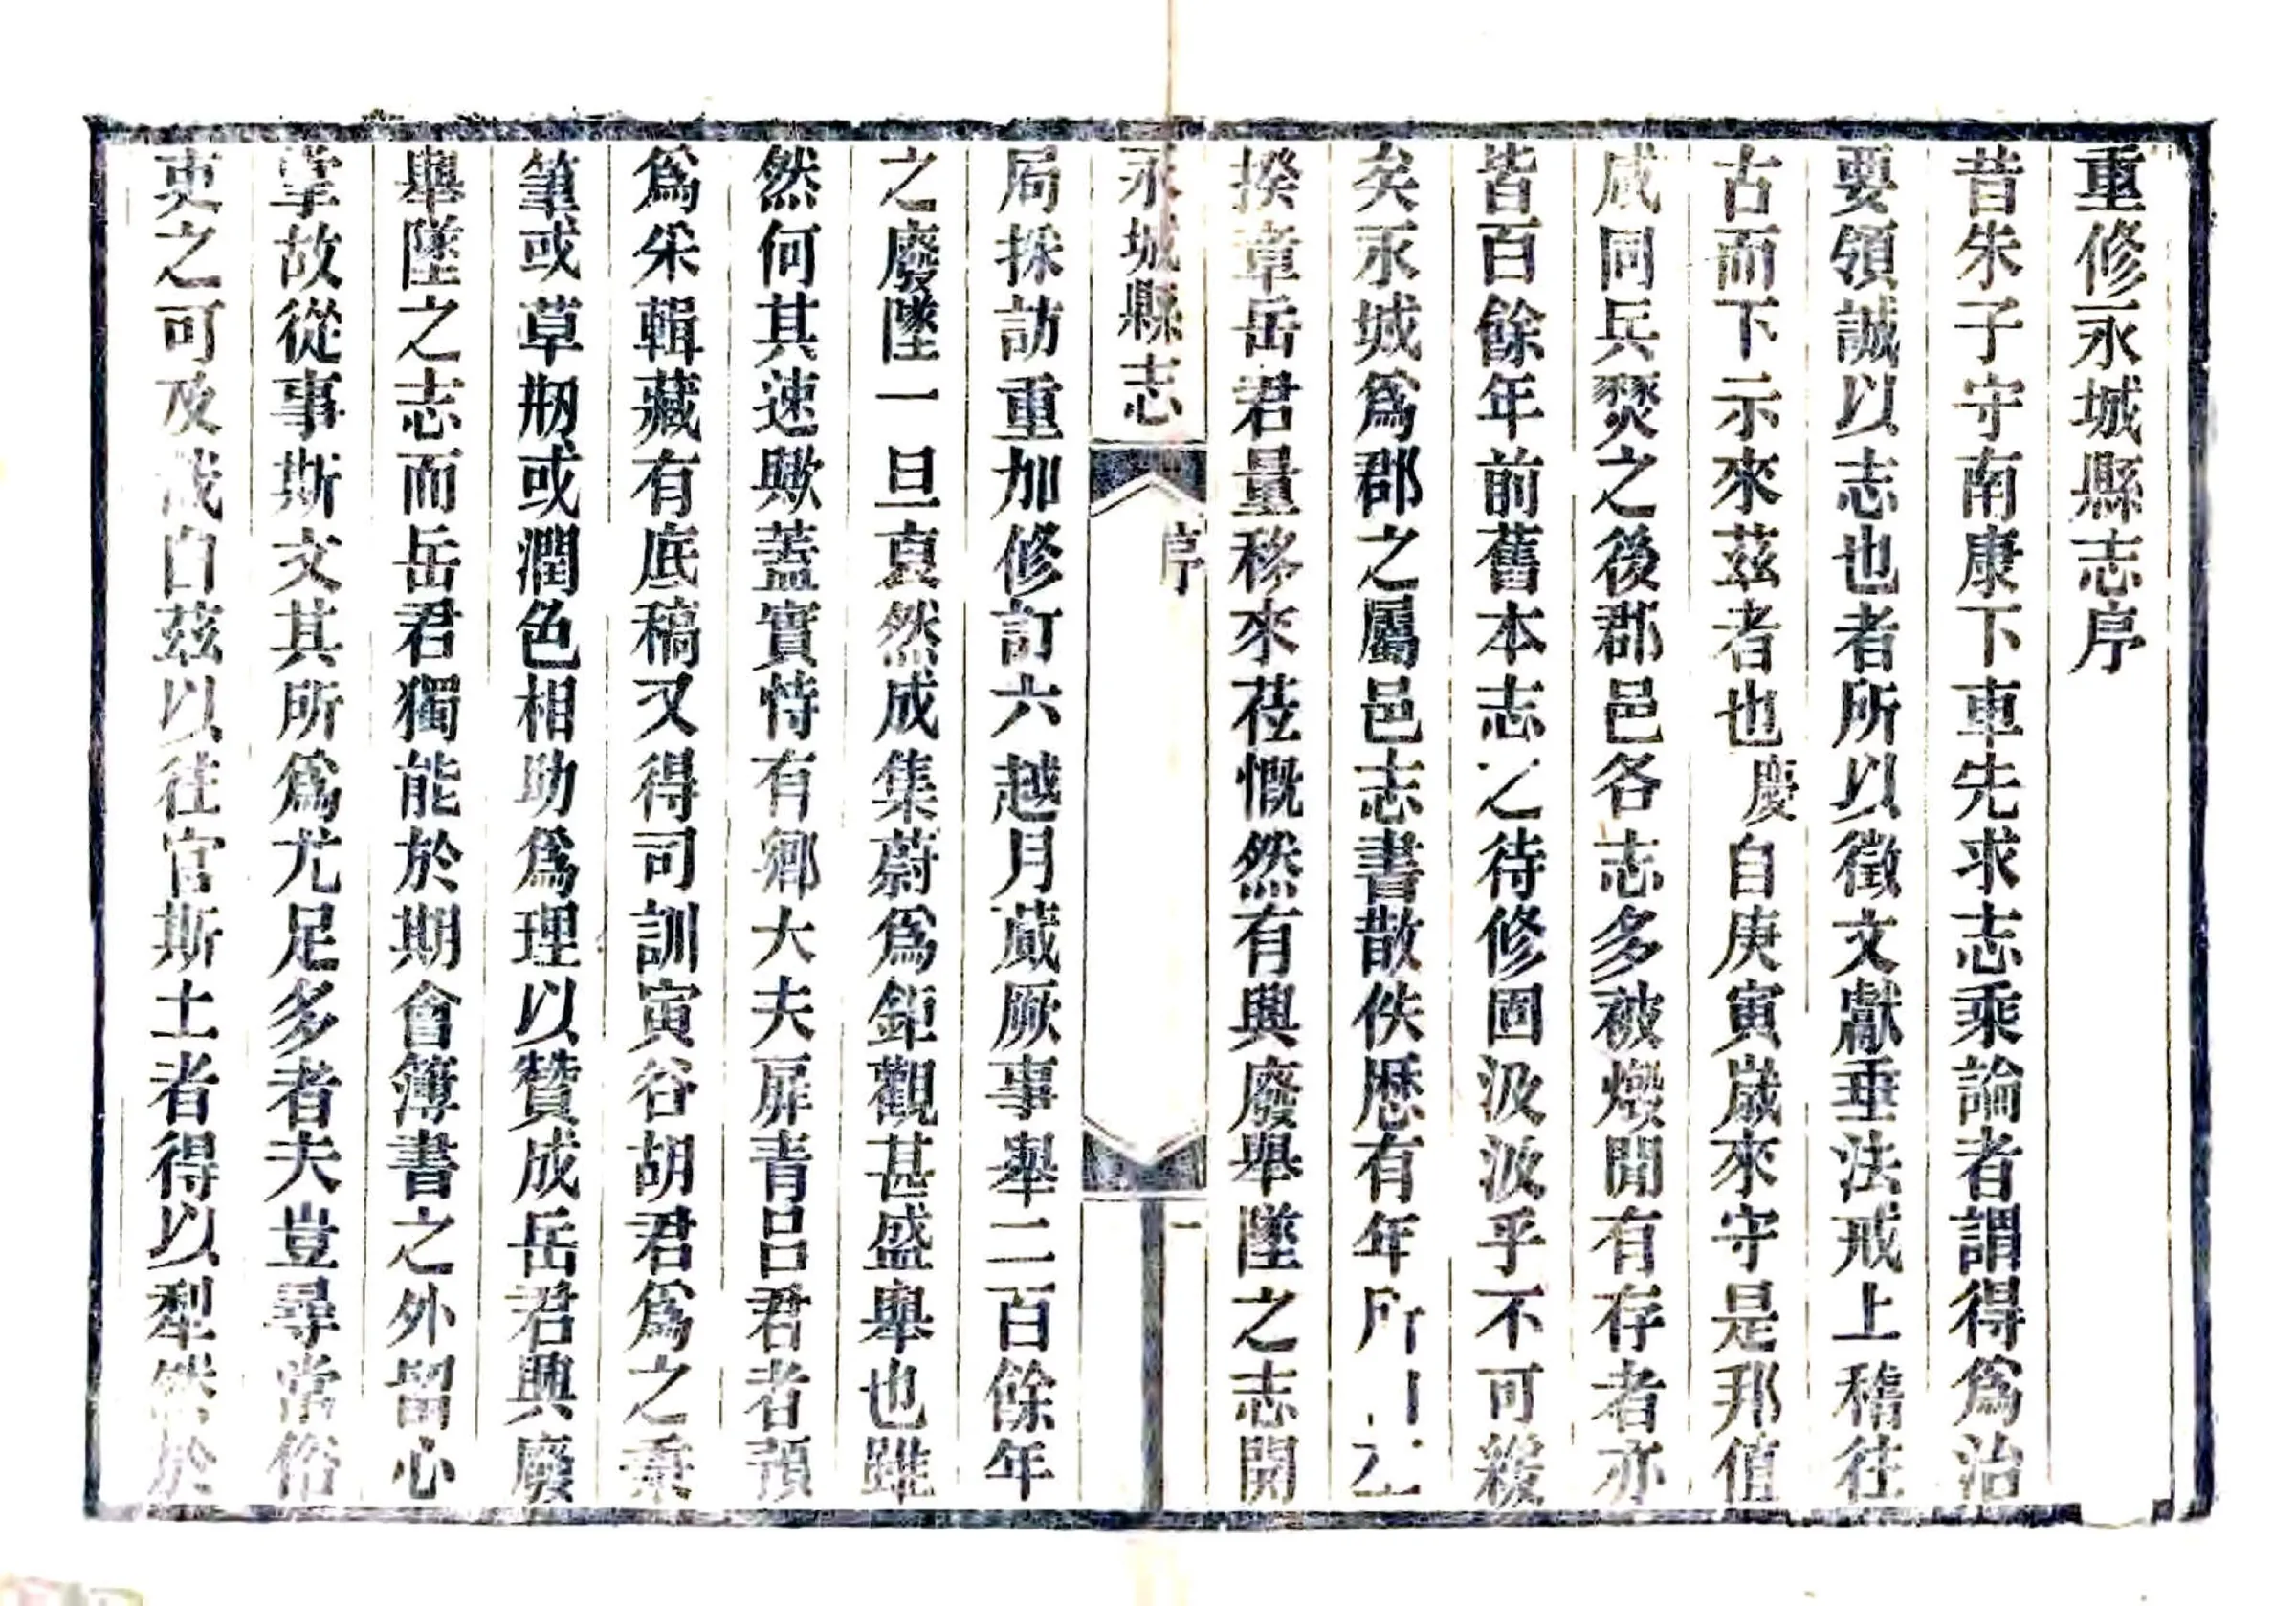 重修永城縣志序
昔朱子守南康下車先求志乘論者謂得爲治
要領誠以志也者所以徵文獻垂法戒上稽往
古而下示來茲者也慶自庚寅歲來守是邦值
咸同兵燹之後郡邑各志多被燬閒有存者亦
皆百餘年前舊本志之待修固汲汲乎不可緩
矣永城爲郡之屬邑志書散佚歷有年所
揆章岳君量移來莅慨然有興廢舉墜之志開
永城縣志
序
一
局採訪重加修訂六越月蕆厥事舉二百餘年
之廢墜一旦裒然成集蔚爲鉅觀甚盛舉也雖
然何其速歟蓋實恃有鄉大夫屏青呂君者預
爲采輯藏有底稿又得司訓寅谷胡君爲之秉
筆或草刱或潤色相助爲理以贊成岳君興廢
舉墜之志而岳君獨能於期會簿書之外留心
掌故從事斯文其所爲尤足多者夫豈尋常俗
吏之可及哉自茲以往官斯土者得以犁然於